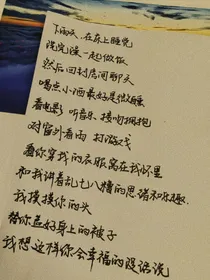 下雨天,在床上睡觉
洗完澡一起做饭
然后回封房间聊天
喝点小酒最好是微醺
看电影 听音乐 接吻拥抱
对窗外看雨 打游戏
看你穿我的衣服窝在我怀里
和我讲着乱七八糟的思绪和乐趣
我摸摸你的头
替你盖好身上的被子
我想这样你会幸福的没话说